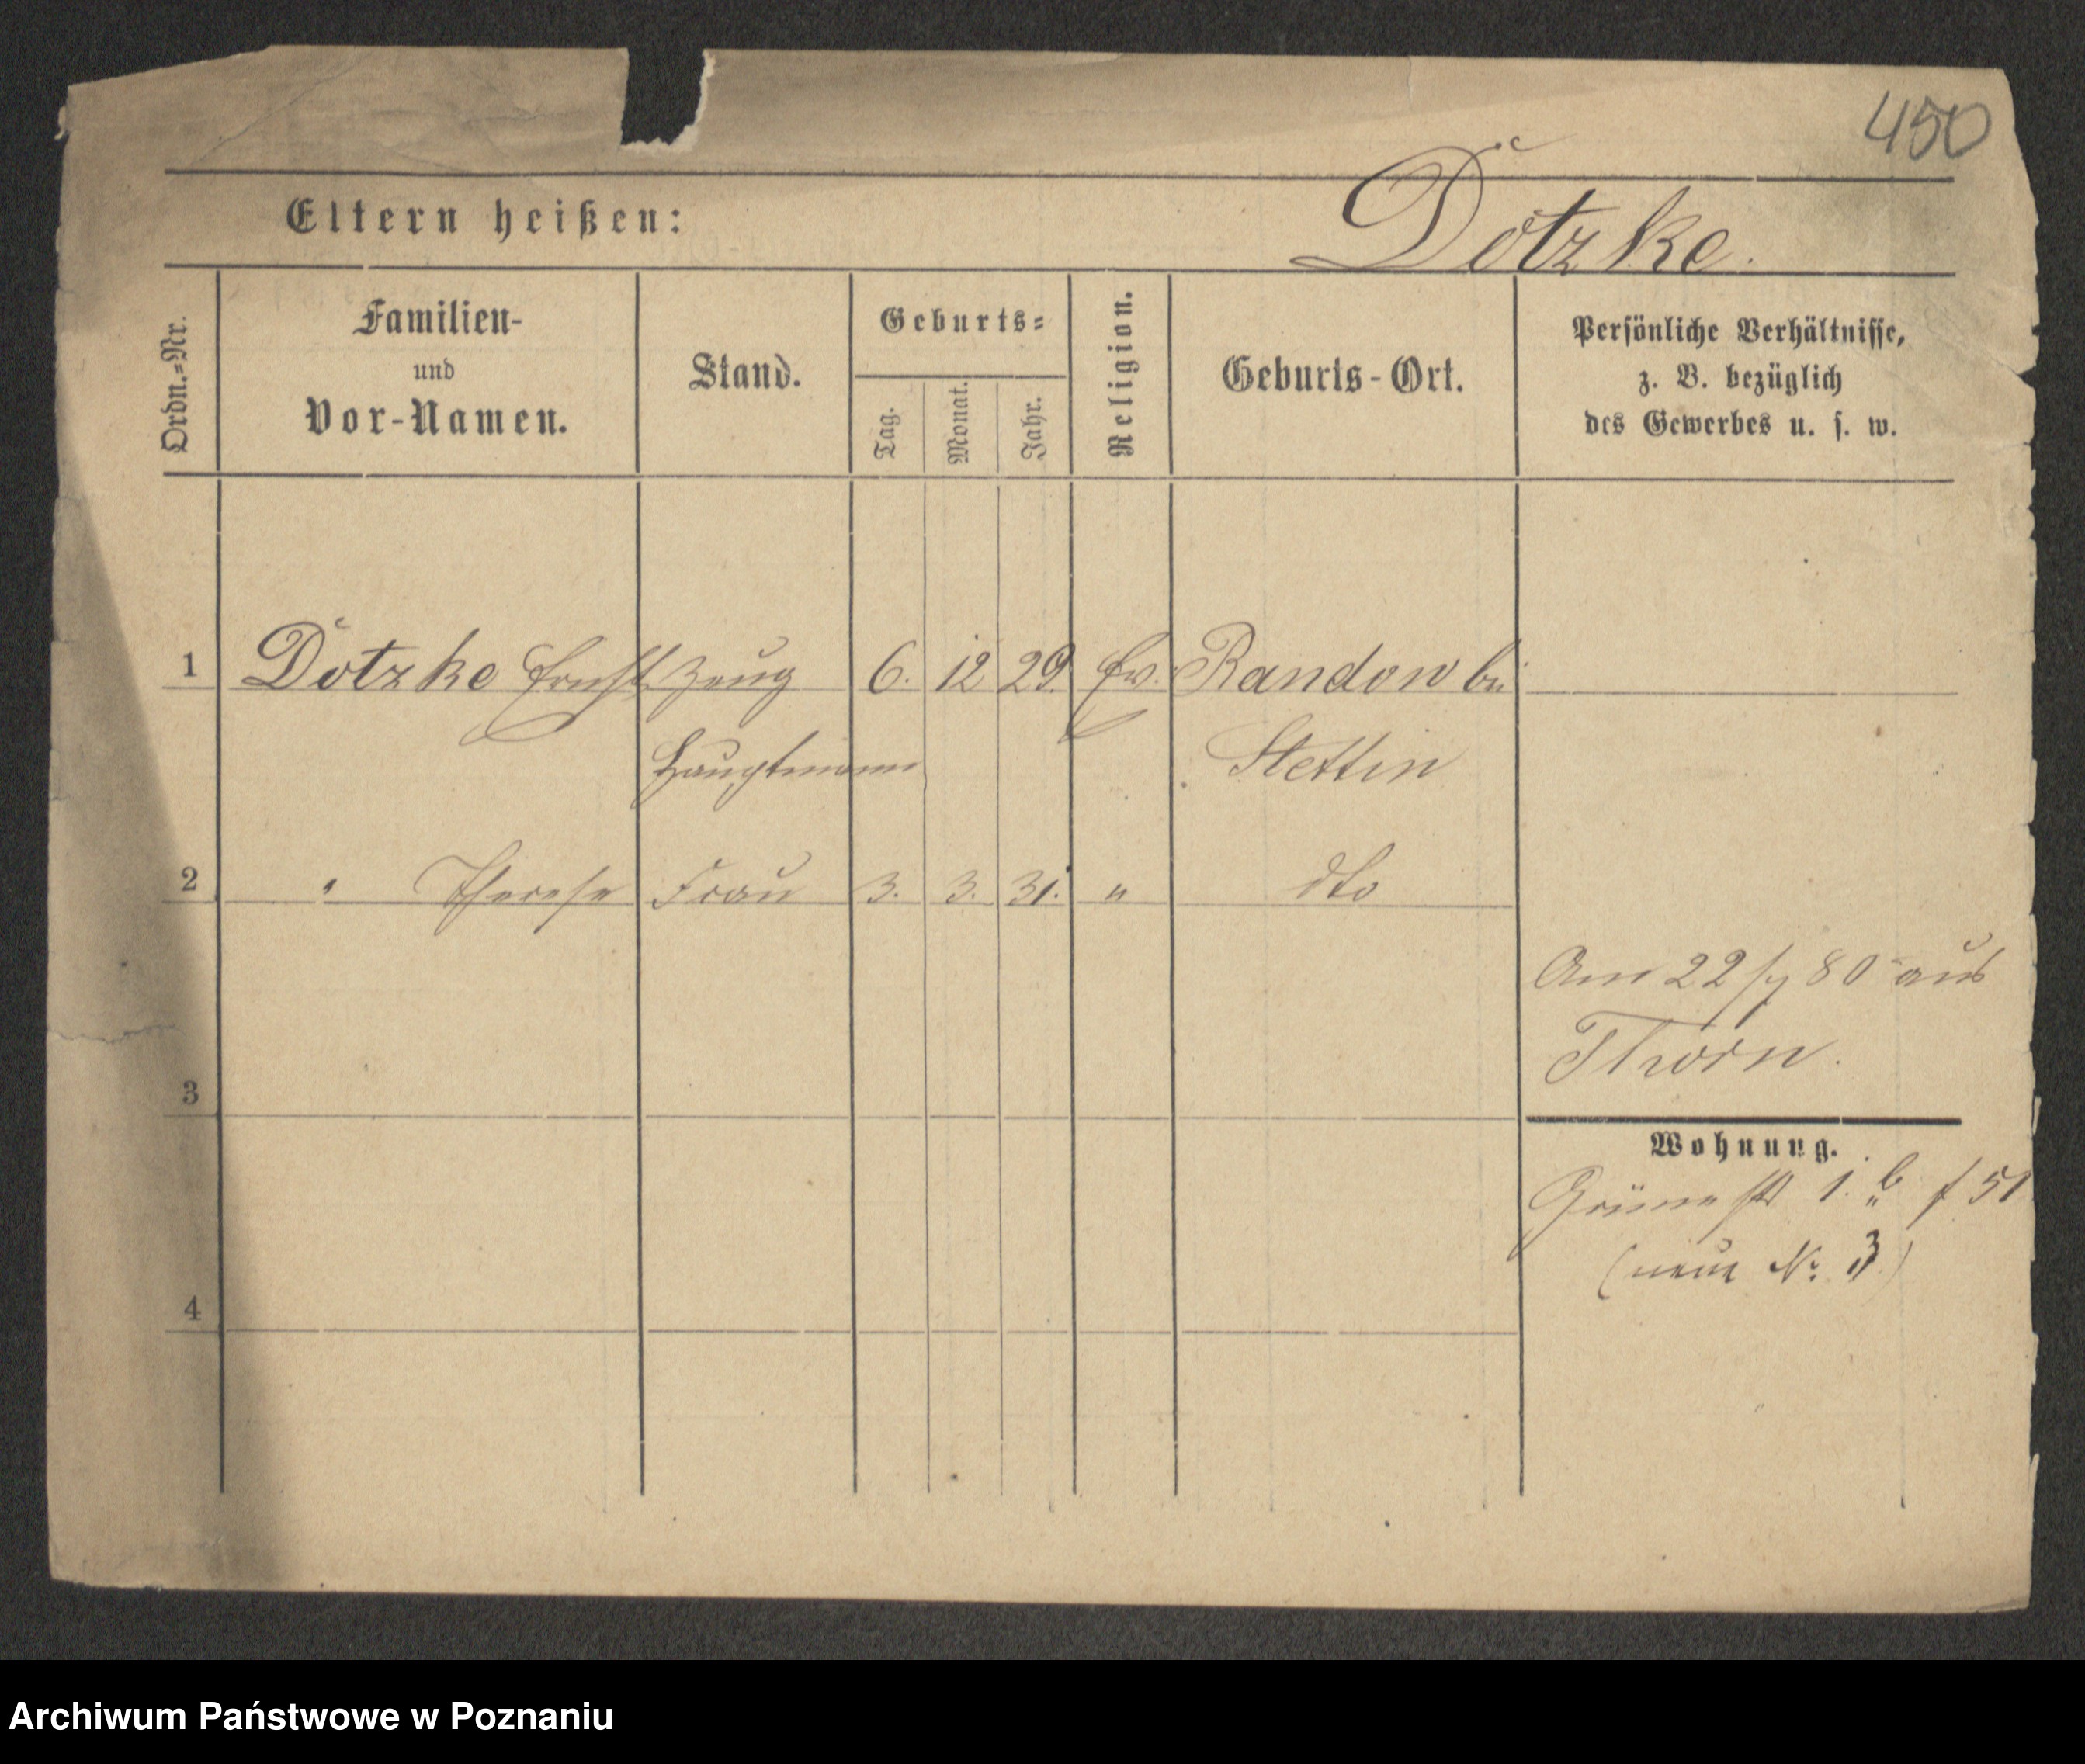 450
Eltern heißen: Dotzke.
Ordn.=Nr. Familien- und Vor-Namen. Stand. Geburts= Tag. Monat. Jahr. Religion. Geburts-Ort. Persönliche Verhältnisse, z. B. bezüglich des Gewerbes u. s. w.
1 Dotzke Ernst Zeug 6. 12 29. Ev. Randow bei
Hauptmann Stettin
2 " Therese Frau 3. 3. 31. " dto
Am 22/7 80 aus
Thorn.
3
Wohnung.
Grünestr 1. b f 51
(neue No 3)
4
Archiwum Państwowe w Poznaniu